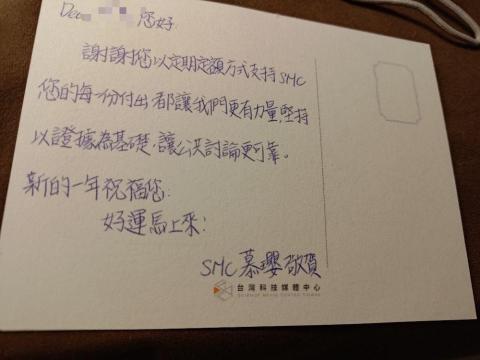 Dear 您好：
謝謝您以定期定額方式支持SMC
您的每一份付出都讓我們更有力量，堅持
以證據為基礎，讓公共討論更可靠。
新的一年祝福您：
好運馬上來！
SMC 慕瓔 敬賀
台灣科技媒體中心
SCIENCE MEDIA CENTRE TAIWAN